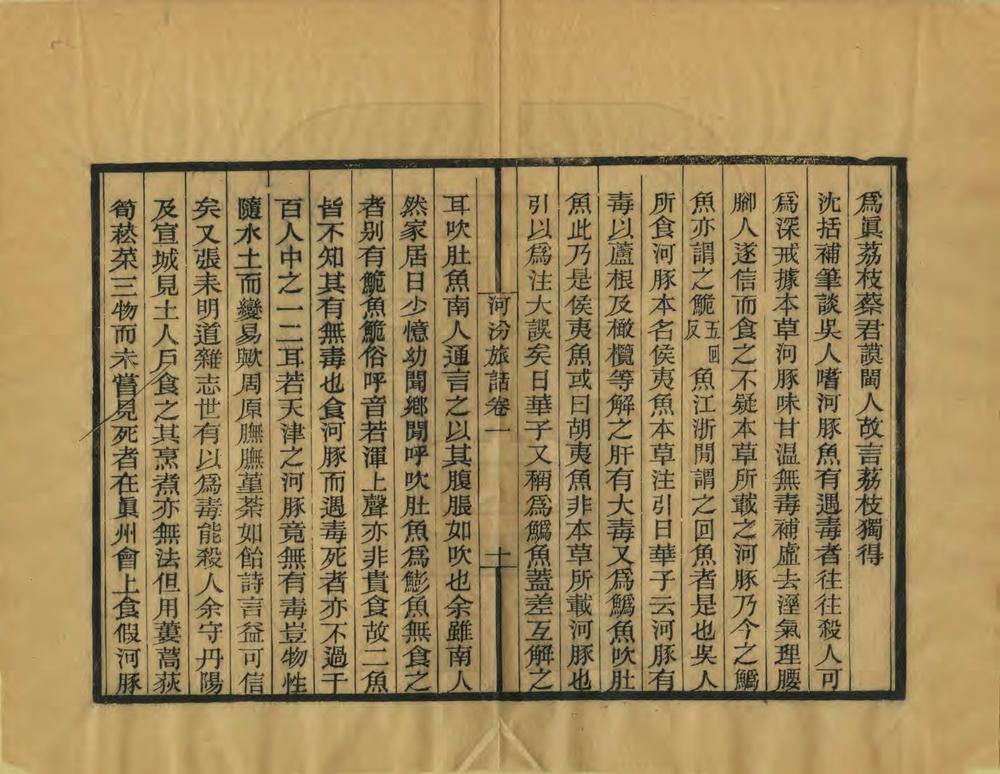 爲眞荔枝蔡君謨閩人故言荔枝獨得
沈括補筆談吳人嗜河豚魚有遇毒者往往殺人可
爲深戒據本草河豚味甘温無毒補虛去溼氣理腰
腳人遂信而食之不疑本草所載之河豚乃今之鰞
魚亦謂之鮠五回反魚江浙閒謂之回魚者是也吳人
所食河豚本名侯夷魚本草注引日華子云河豚有
毒以蘆根及橄欖等解之肝有大毒又爲鰞魚吹肚
魚此乃是侯夷魚或曰胡夷魚非本草所載河豚也
引以爲注大誤矣日華子又稱爲鰞魚蓋差互解之
河汾旅話卷一
十
耳吹肚魚南人通言之以其腹脹如吹也余雖南人
然家居日少憶幼聞鄉閒呼吹肚魚爲魻魚無食之
者别有鮠魚鮠俗呼音若渾上聲亦非貴食故二魚
皆不知其有無毒也食河豚而遇毒死者亦不過千
百人中之一二耳若天津之河豚竟無有毒豈物性
隨水土而變易歟周原膴膴堇荼如飴詩言益可信
矣又張耒明道雜志世有以爲毒能殺人余守丹陽
及宣城見土人戶食之其烹煮亦無法但用蔞蒿荻
筍菘菜三物而未嘗見死者在眞州會上食假河豚